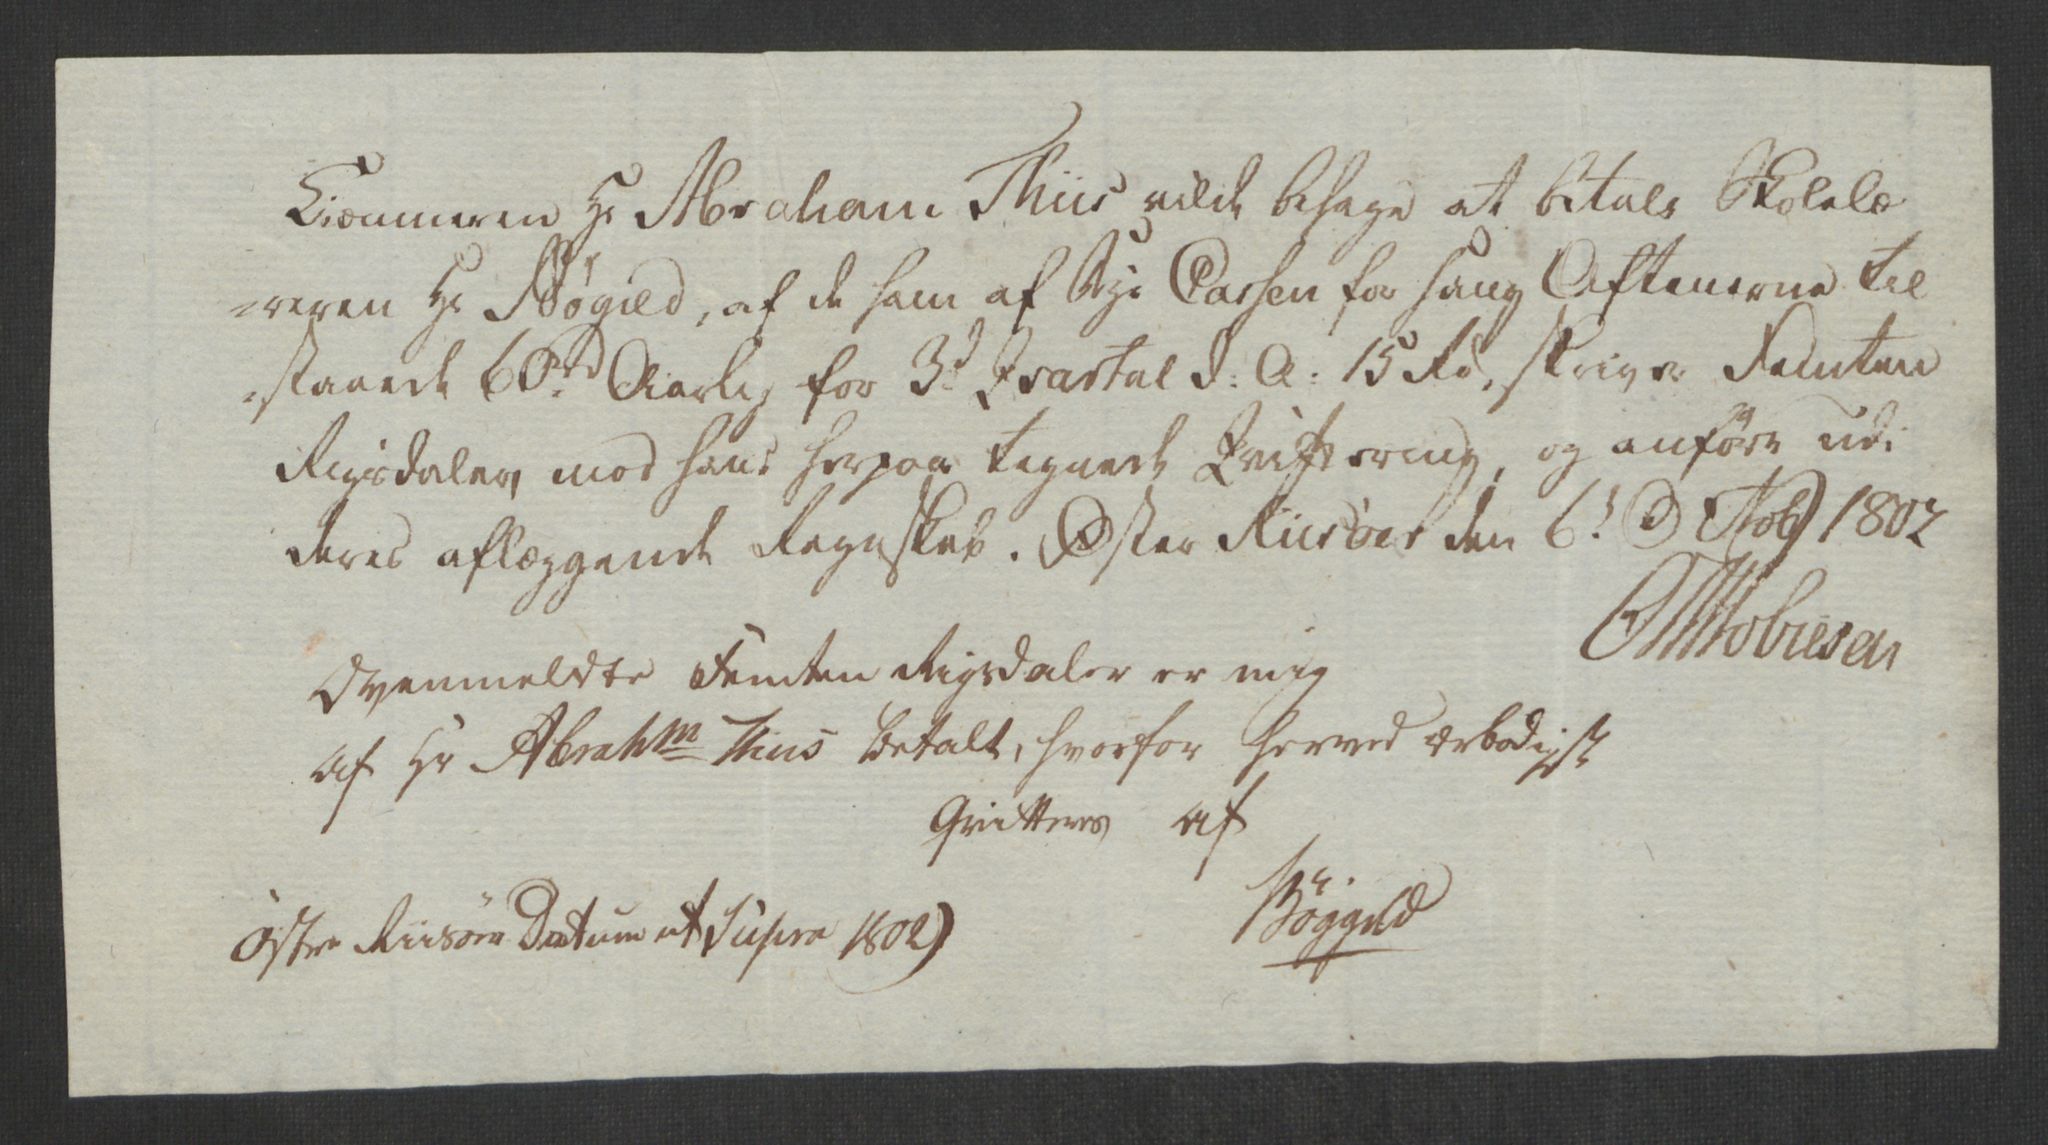 Kiæmneren Hr Abraham Thiis vilde behage at betale Skolelæ
=reren Hr Bøgild, af de ham af Bye Cassen for hans Aftenerne til
=staaede 60 rd Aarlig for 3d Qvartal d: A: 15 Rd, skriver Femten
Rigsdaler, mod hans herpaa tegnede Qvittering, og anføre udi
deres aflæggende Regnskab. Øster Riisöer den 6t Octob) 1802
Ovenmeldte Femten Rigsdaler er mig
af Hr Abrahm Thiis betalt, hvorfor herved ærbødigst
Qvitteres af
Böggild
Östre Riisöer Datum ut Supra 1802)